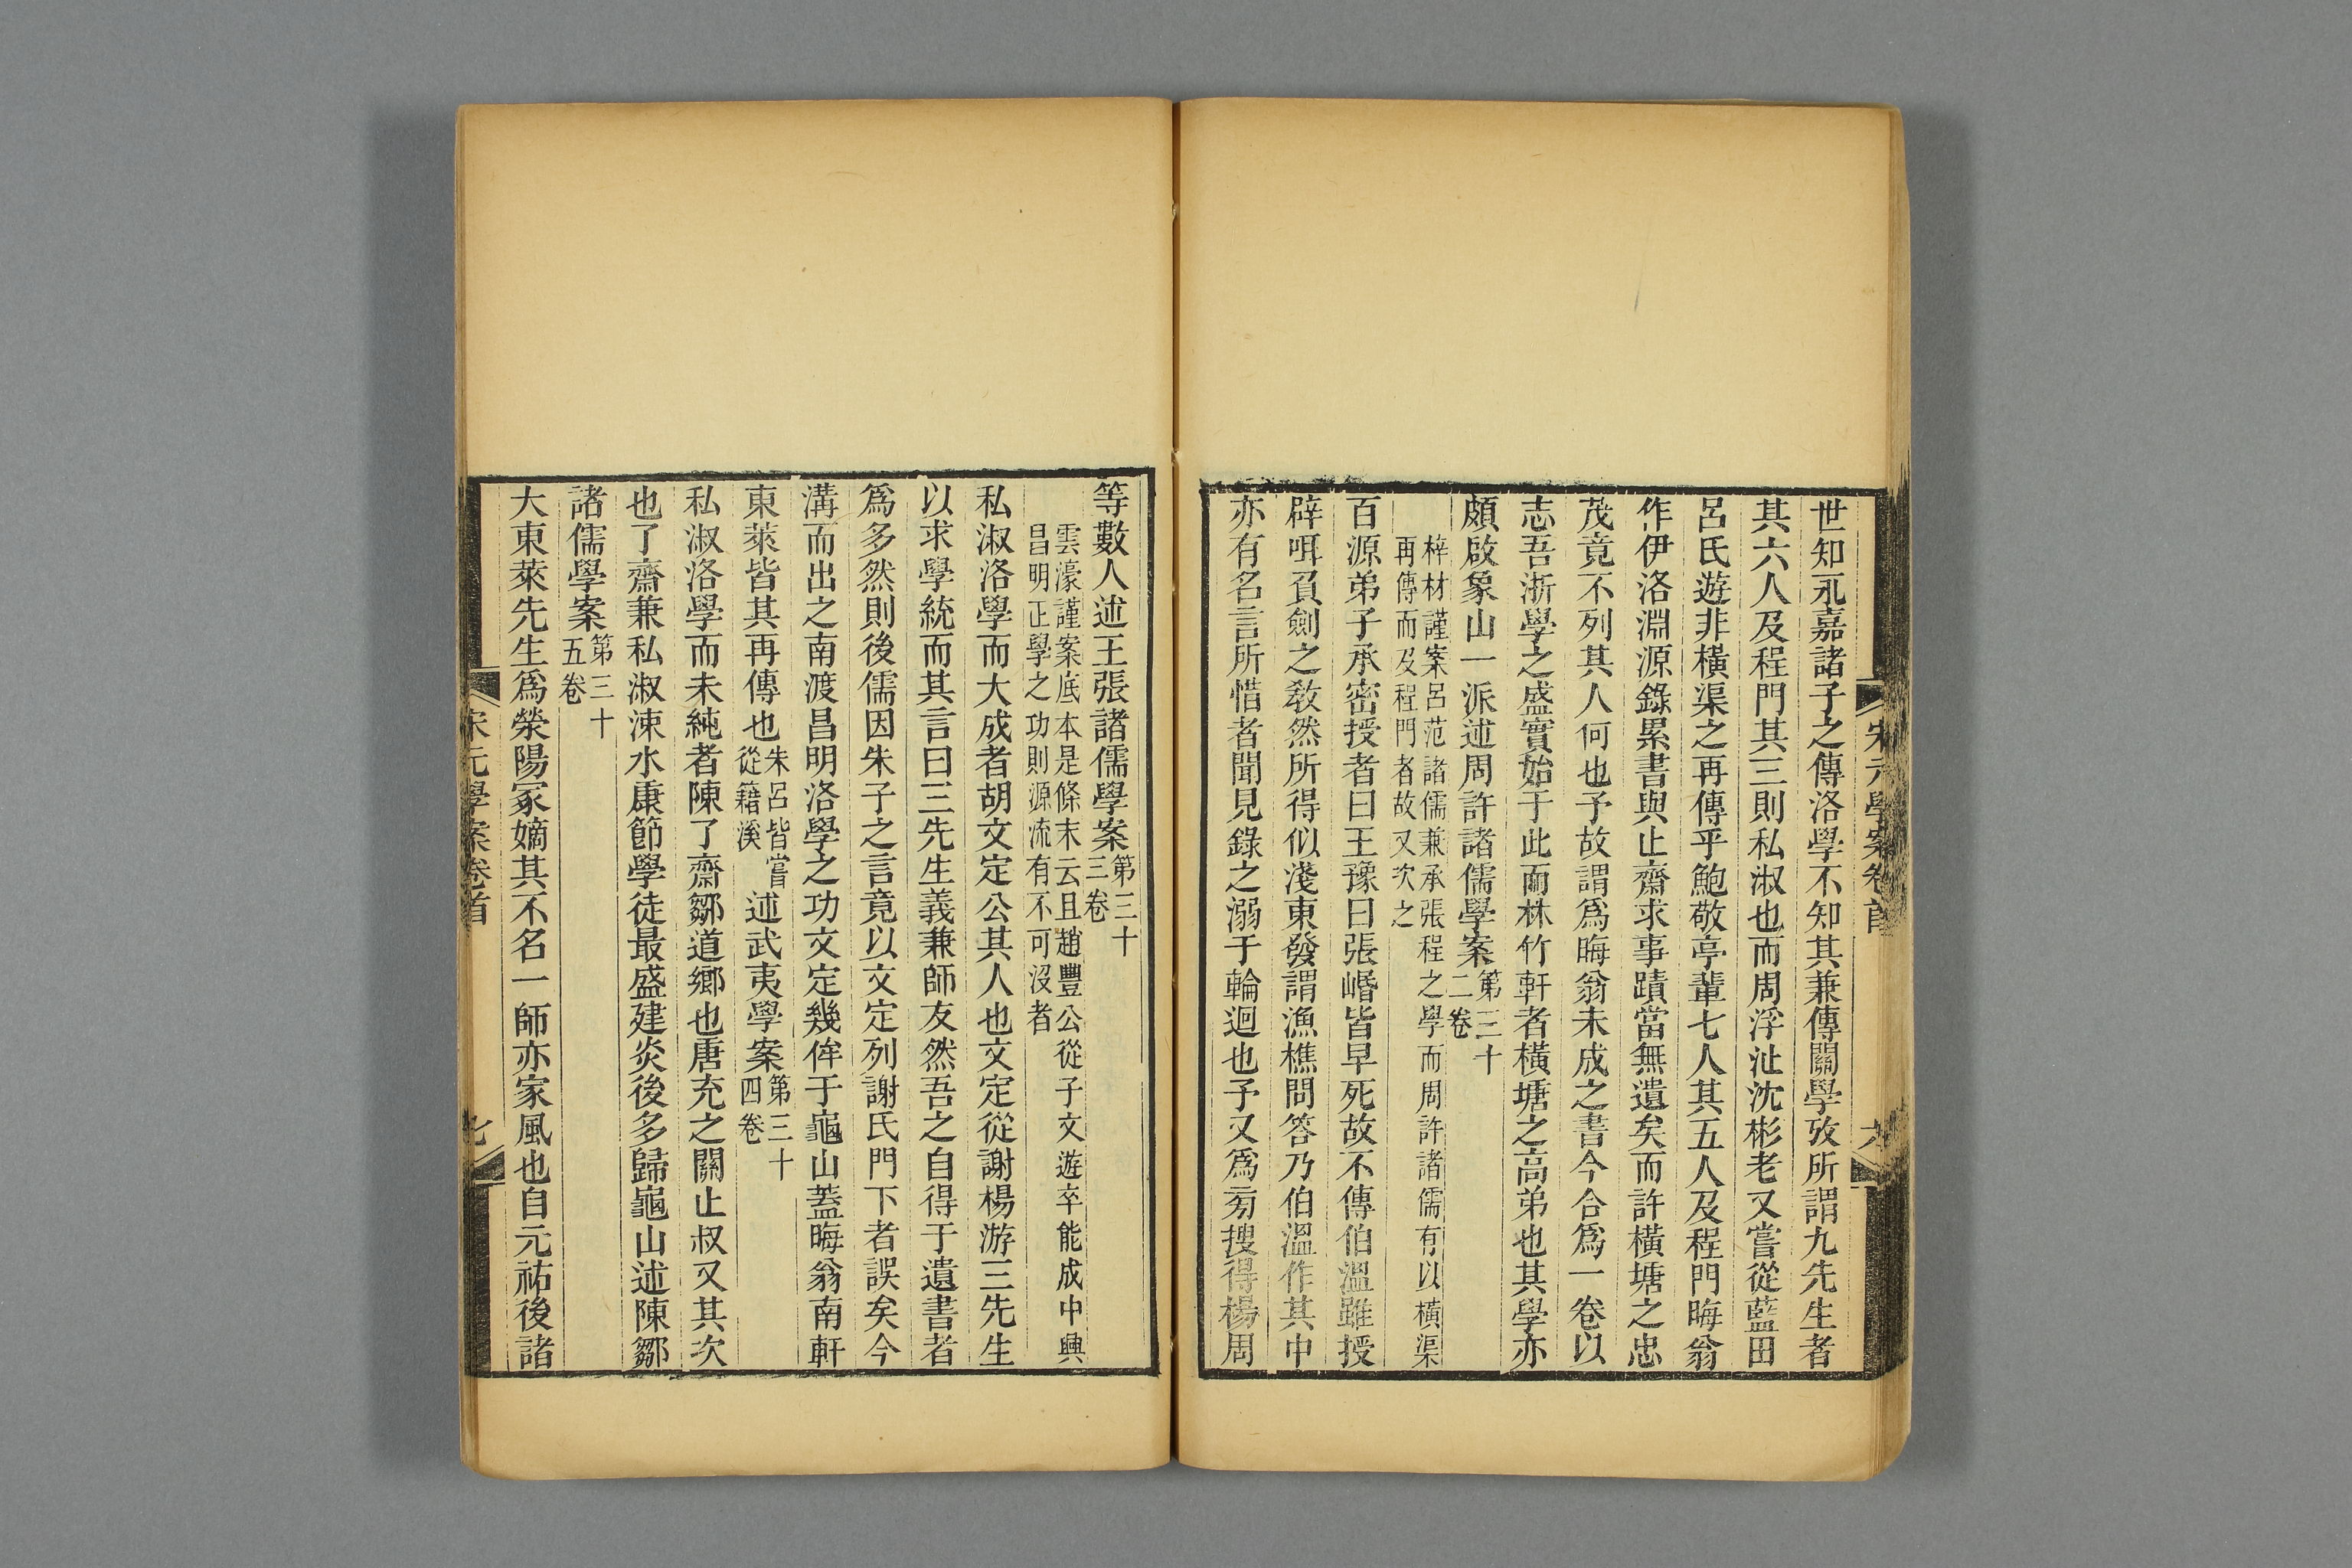 世知永嘉諸子之傳洛學不知其兼傳關學攷所謂九先生者
其六人及程門其三則私淑也而周浮沚沈彬老又嘗從藍田
呂氏遊非橫渠之再傳乎鮑敬亭輩七人其五人及程門晦翁
作伊洛淵源錄累書與止齋求事蹟當無遺矣而許橫塘之忠
茂竟不列其人何也予故謂爲晦翁未成之書今合爲一卷以
志吾浙學之盛實始于此而林竹軒者橫塘之高弟也其學亦
頗啟象山一派述周許諸儒學案第三十
二卷
梓材謹案呂范諸儒兼承張程之學而周許諸儒有以橫渠
再傳而及程門者故又次之
百源弟子承密授者曰王豫曰張㟭皆早死故不傳伯溫雖授
辟咡負劍之敎然所得似淺東發謂漁樵問答乃伯溫作其中
亦有名言所惜者聞見錄之溺于輪迴也予又爲旁搜得楊周
宋元學案卷首
六
等數人述王張諸儒學案第三十
三卷
雲濠謹案底本是條末云且趙豐公從子文遊卒能成中興
昌明正學之功則源流有不可沒者
私淑洛學而大成者胡文定公其人也文定從謝楊游三先生
以求學統而其言曰三先生義兼師友然吾之自得于遺書者
爲多然則後儒因朱子之言竟以文定列謝氏門下者誤矣今
溝而出之南渡昌明洛學之功文定幾侔于龜山蓋晦翁南軒
東萊皆其再傳也朱呂皆嘗
從籍溪述武夷學案第三十
四卷
私淑洛學而未純者陳了齋鄒道鄉也唐充之關止叔又其次
也了齋兼私淑涑水康節學徒最盛建炎後多歸龜山述陳鄒
諸儒學案第三十
五卷
大東萊先生爲滎陽冢嫡其不名一師亦家風也自元祐後諸
宋元學案卷首
七